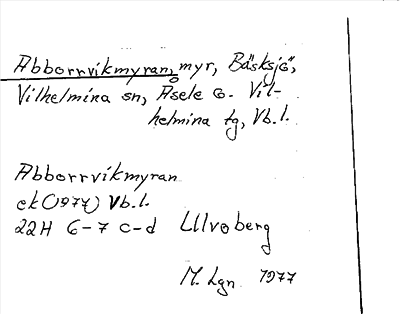 Abborrvikmyran, myr, Bäsksjö,
Vilhelmina sn, Åsele o. Vil-
helmina tg, Vb.l.
Abborrvikmyran
ek (1977) Vb.l.
22H 6-7 c-d Ullvoberg
M. Lgn 1977